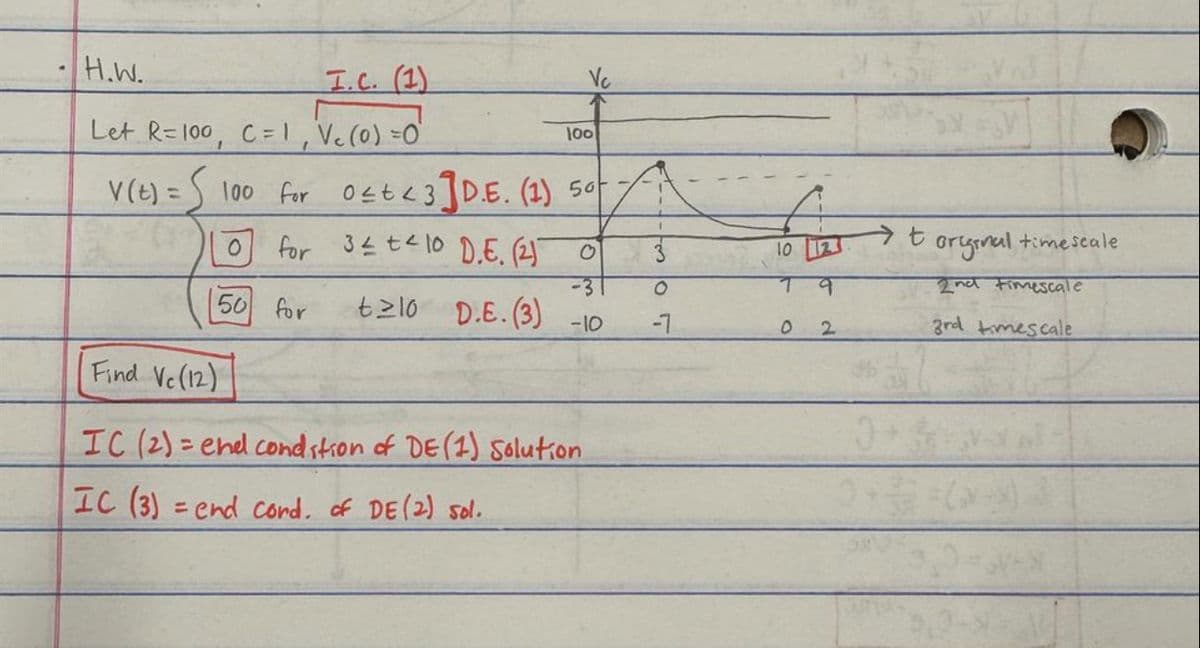 • H.W.
I.C. (1)
Vc
Let R=100, C=1, Vc(0)=0
100
V(t) = { 100 for 0≤t<3 ] D.E. (1)
50
0 for 3≤t<10 D.E. (2)
0 3 10 12 → t original timescale
-3 0 7 9 2nd timescale
50 for t≥10 D.E. (3)
-10 -7 0 2 3rd timescale
Find Vc(12)
IC (2) = end condition of DE(1) Solution
IC (3) = end cond. of DE(2) sol.